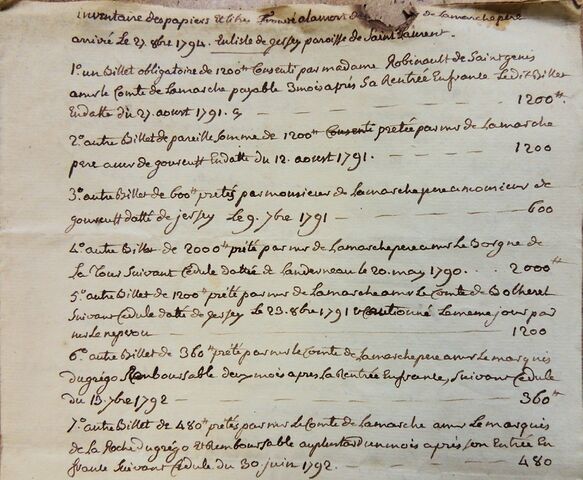 inventaire des papiers et titre Trouvé alamort de de Lamarche pere
arrivé Le 27. 8bre 1794. En lisle de gersey paroisse de Saint Laurent.
1° un Billet obligatoire de 1200tt Consenti par madame Robinault de Saint genis
amr le Comte de Lamarche payable 3 mois après Sa Rentrée En france Ledit Billet
En datte du 27. aoust 1791. 1200tt.
2° autre Billet de pareille Somme de 1200tt Consenti pretée par mr de Lamarche
pere amr de gourcuff En datte du 12. aoust 1791. 1200
3° autre Billet de 600tt pretés par monsieur de Lamarche pere a monsieur de
gourcuff datté de jersey Le 9. 7bre 1791 600
4° autre Billet de 2000tt prêté par mr de Lamarche pere amr Le Borgne de
La Tour Suivant Cedule datée de Landerneau le 20. may 1790. . . 2000tt
5° autre Billet de 1200tt prêté par mr de Lamarche amr le Comte de Bolheret
Suivant Cedule datté de jersey Le 23. 8bre 1791 Cautionné Lameme jour par
mr Le nepvou 1200
6° autre Billet de 360tt prêté par mr le Comte de Lamarche pere amr Le marquis
Dugrégo Remboursable deux mois apres La Rentrée En france, Suivant Cedule
du 13. 7bre 1792 360tt
7° autre Billet de 480tt pretés par mr Le Comte de Lamarche amr Le marquis
de La Roche dugrégo et Remboursable auplustard un mois après son Entrée En
france Suivant Cedule du 30 juin 1792. 480